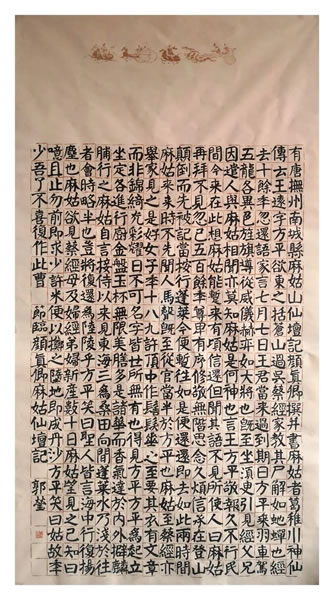 有唐撫州南城縣麻姑山仙壇記顏真卿撰并書麻姑者葛稚川神仙
傳云王遠字方平欲東之括蒼山過吳蔡經家教其尸解如蛇蟬也經
去十餘年忽還語家言七月七日王君當來過到期日方平乘羽車駕
五龍各異色旌旗導從威儀赫奕如大將也既至坐須臾引見經父兄
因遣人與麻姑相聞亦莫知麻姑是何神也言王方平敬報久不行民
間今來在此想麻姑能暫來有頃信還但聞其語不見所使人曰麻姑
再拜不見忽已五百餘年尊卑有序修敬無階思念久煩信承在登山
顛倒而先被記當按行蓬萊今便暫往如是便還還即去如此兩時間
麻姑來來時不先聞人馬聲既至從官當半於方平也麻姑至蔡經亦
舉家見之是好女子年十八九許頂中作髻垂之至要其衣有文章
而非錦綺光彩耀日不可名字皆世所無有也得見方平方平為起立
坐定各進行廚金盤玉杯無限美膳多是諸華而香氣達於內外擗麟
脯行之麻姑自言接待以來見東海三為桑田向間蓬萊水乃淺於往
者會時略半也豈將復還為陸陵乎方平笑曰聖人皆言海中行復揚
塵也麻姑欲見蔡經母及婦經弟婦新產數十日麻姑望見之已知曰
噫且止勿前即求少許米便以擲之墮地即成丹沙方平笑曰姑故年
少吾了不喜復作此曹 節臨顏真卿麻姑仙壇記 郭